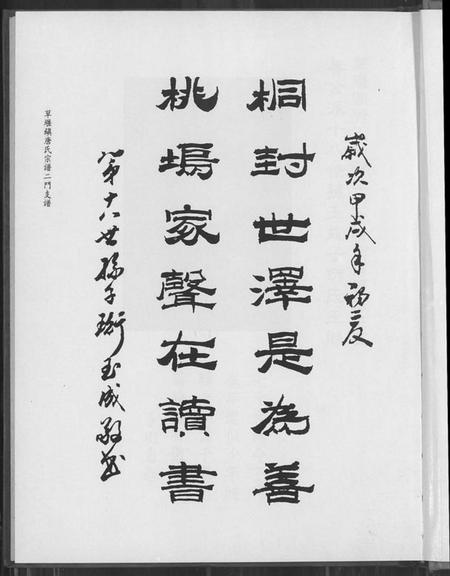 歲次甲戌年初夏
桐封世澤是為善
桃塢家聲在讀書
第十八世孫子衡玉成敬書
草堰鎮唐氏宗譜二門支譜